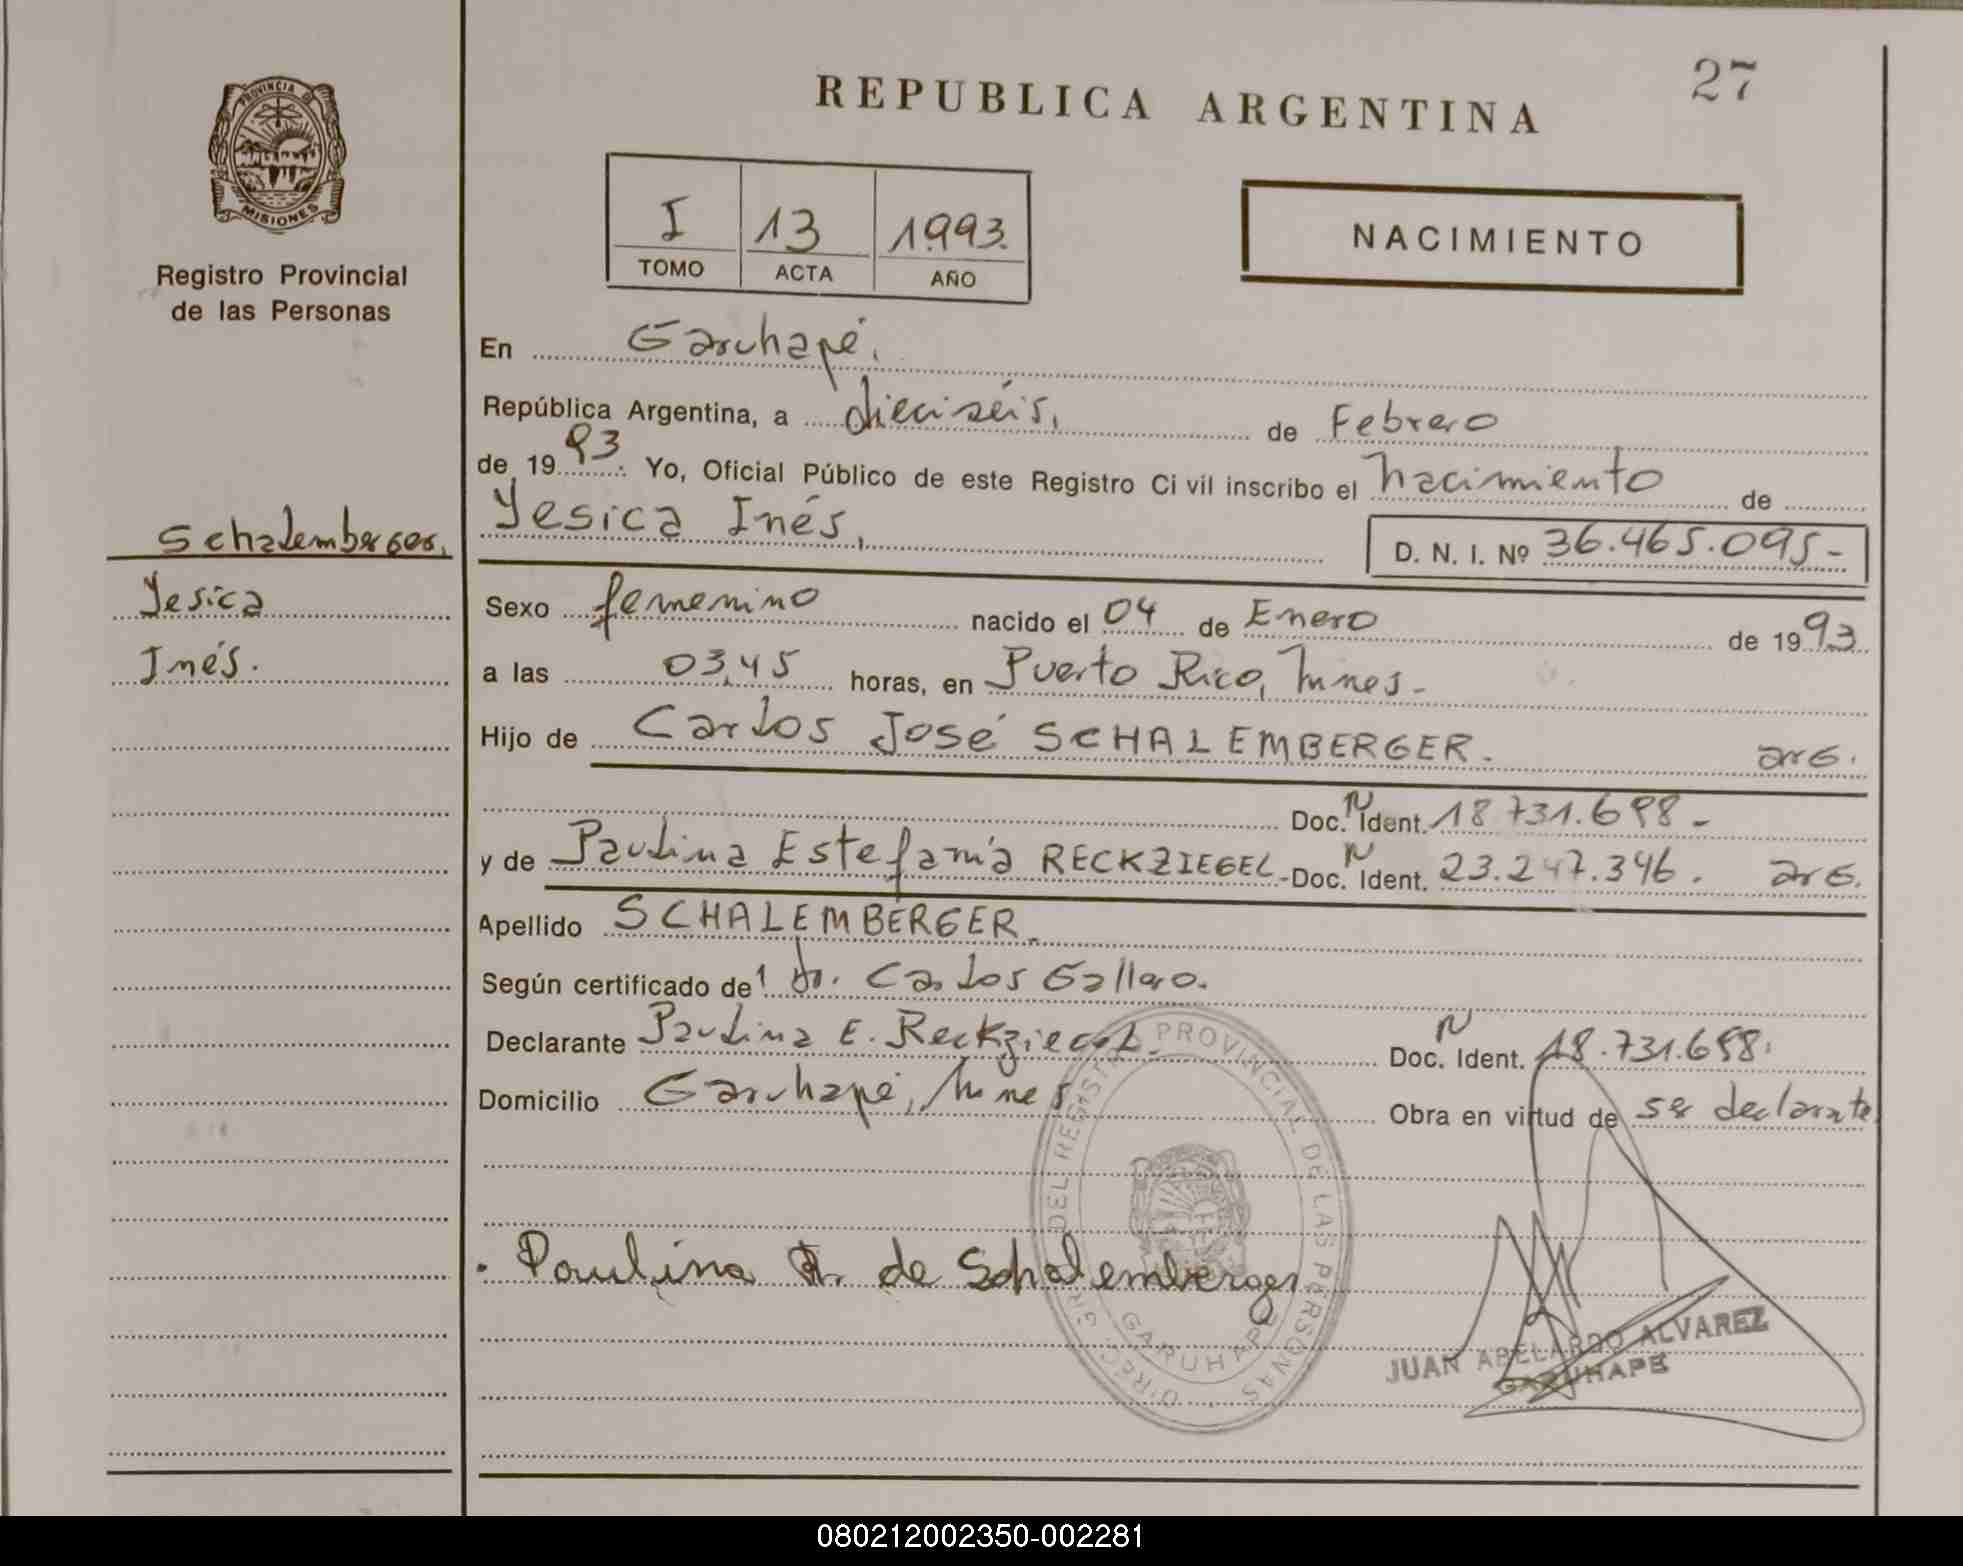 PROVINCIA DE
MISIONES
Registro Provincial
de las Personas
Schalemberger,
Yesica
Inés.
27
REPUBLICA ARGENTINA
I 13 1993.
TOMO ACTA AÑO
NACIMIENTO
En Garuhapé,
República Argentina, a dieciséis, de Febrero
de 1993. Yo, Oficial Público de este Registro Civil inscribo el nacimiento de
Yesica Inés, D. N. I. Nº 36.465.095-
Sexo femenino nacido el 04 de Enero de 1993
a las 03,45 horas, en Puerto Rico,
Hijo de Carlos José SCHALEMBERGER. arg.
Doc. N Ident. 18 731.698-
y de Paulina Estefanía RECKZIEGEL- Doc. N Ident. 23.247.346. arg.
Apellido SCHALEMBERGER.
Según certificado del dr. Carlos Gallero.
Declarante Paulina E. Reckziegel. Doc. N Ident. 18.731.698.
Domicilio Garuhapé, Obra en virtud de ser declarante
. Paulina R. de Schalemberger
DIREC. GR. DEL REGISTRO PROVINCIAL DE LAS PERSONAS
GARUHAPE
JUAN ABELARDO ALVAREZ
GARUHAPE
080212002350-002281